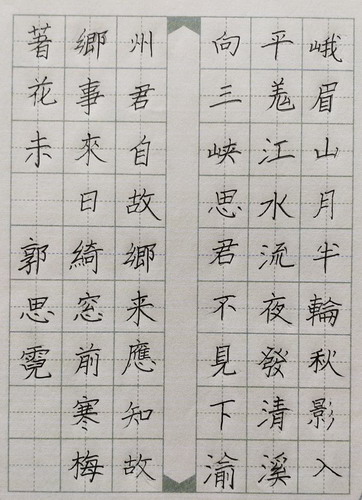 峨眉山月半輪秋影入
平羗江水流夜發清溪
向三峽思君不見下渝
州君自故鄉来應知故
鄉事來日綺窓前寒梅
著花未 郭思霓